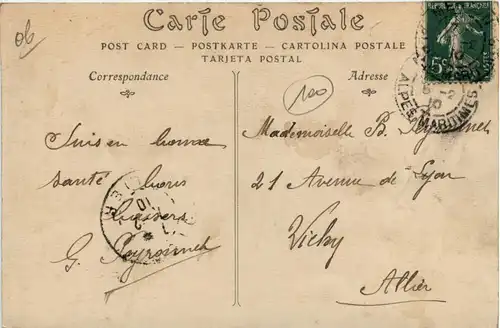 06
Carte Postale
POST CARD — POSTKARTE — CARTOLINA POSTALE
TARJETA POSTAL
Correspondance
Adresse
100
5c
ALPES MARITIMES
Suis en bonne
santé bons
baisers
G. Peyronnet
Mademoiselle B. Peyronnet
21 Avenue de Lyon
Vichy
Allier